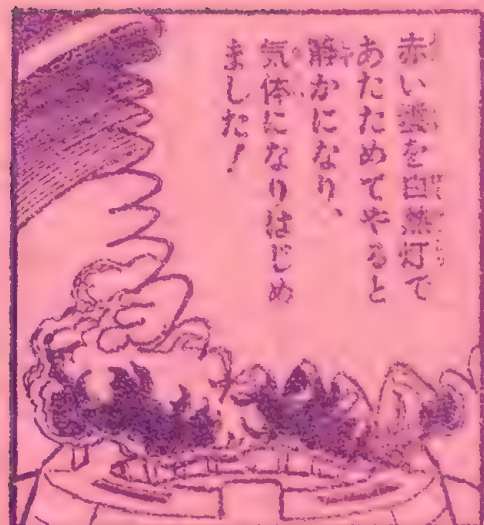 赤い雲を白熱灯で
あたためてやると
静かになり、
気体になりはじめ
ました!